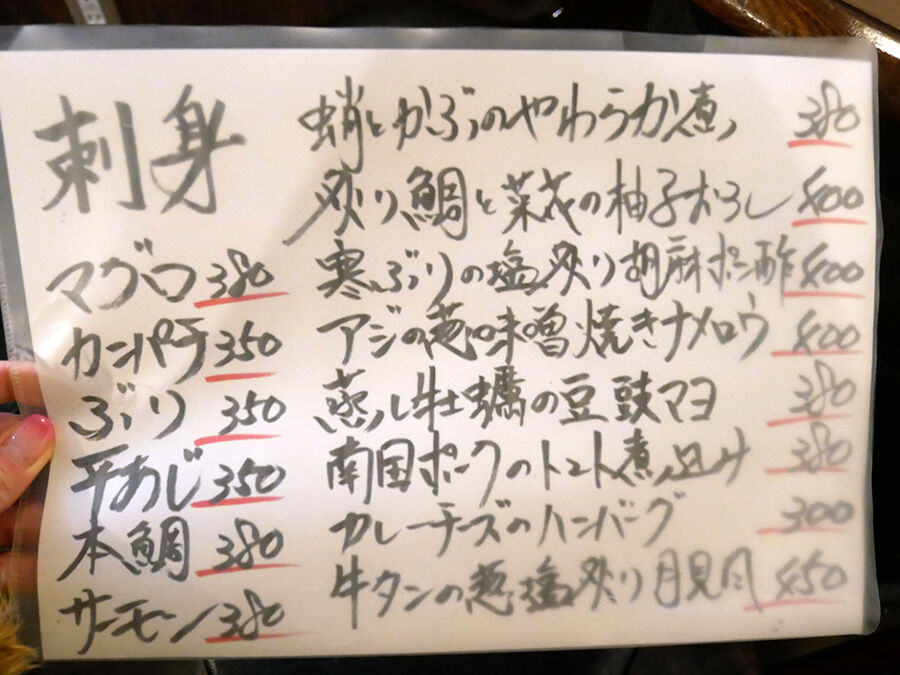 刺身
マグロ 380
カンパチ 350
ぶり 350
平あじ 350
本鯛 380
サーモン 380
蛸とかぶのやわらか煮 380
炙り鯛と菜花の柚子おろし 400
寒ぶりの塩炙り胡麻ポン酢 400
アジの葱味噌焼きナメロウ 400
蒸し牡蠣の豆豉マヨ 380
南国ポークのトマト煮込み 380
カレーチーズのハンバーグ 300
牛タンの葱塩炙り月見風 450